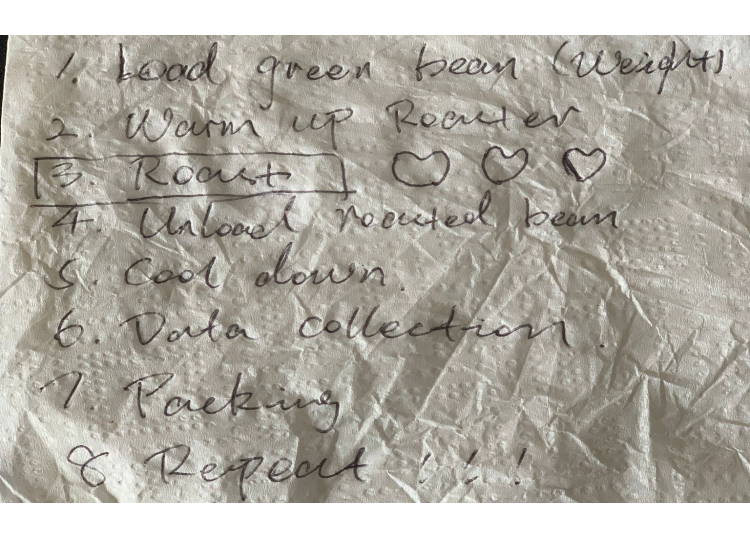 1. Load green bean (Weight)
2. Warm up Roaster
3. Roast
4. Unload roasted bean
5. Cool down.
6. Data collection.
7 Packing
8 Repeat !!!